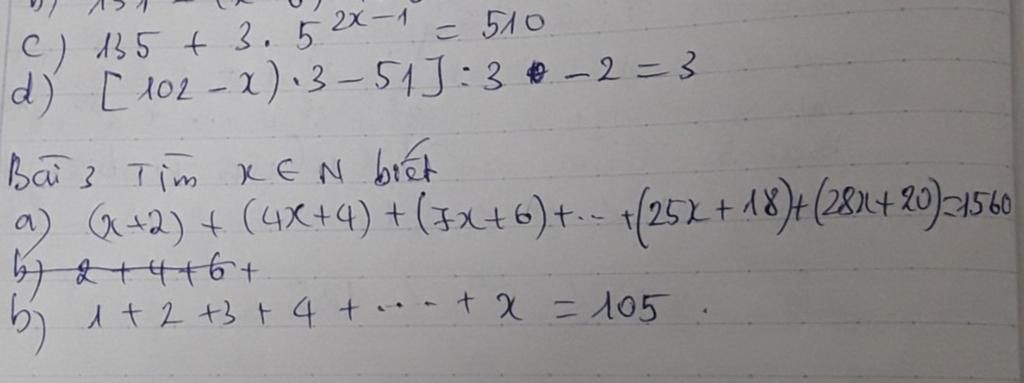 c) 135 + 3. 5^{2x-1} = 510
d) [102 - x).3 - 51] : 3 - 2 = 3
Bài 3 Tìm x ∈ N biết
a) (x+2) + (4x+4) + (7x+6) + ... + (25x + 18) + (28x + 20) = 1560
b) 2 + 4 + 6 +
b) 1 + 2 + 3 + 4 + .... + x = 105.